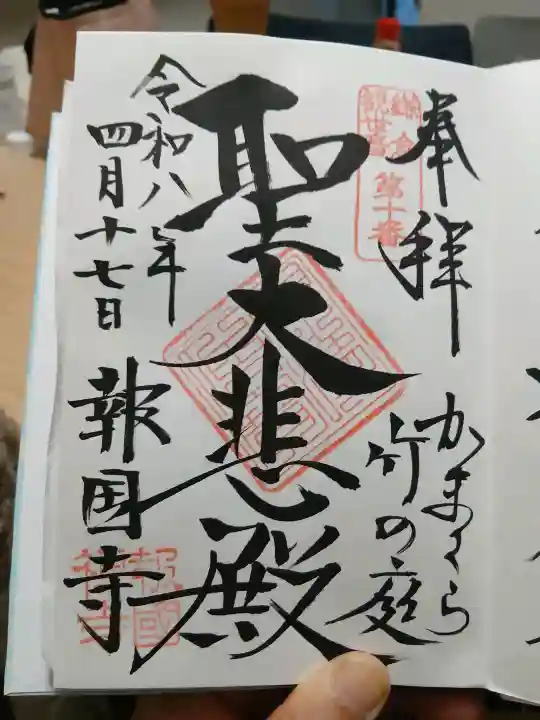 奉拝
鎌倉
観世音
第十番
かまくら
竹の庭
聖大悲殿
令和八年
四月十七日
報国寺
報國